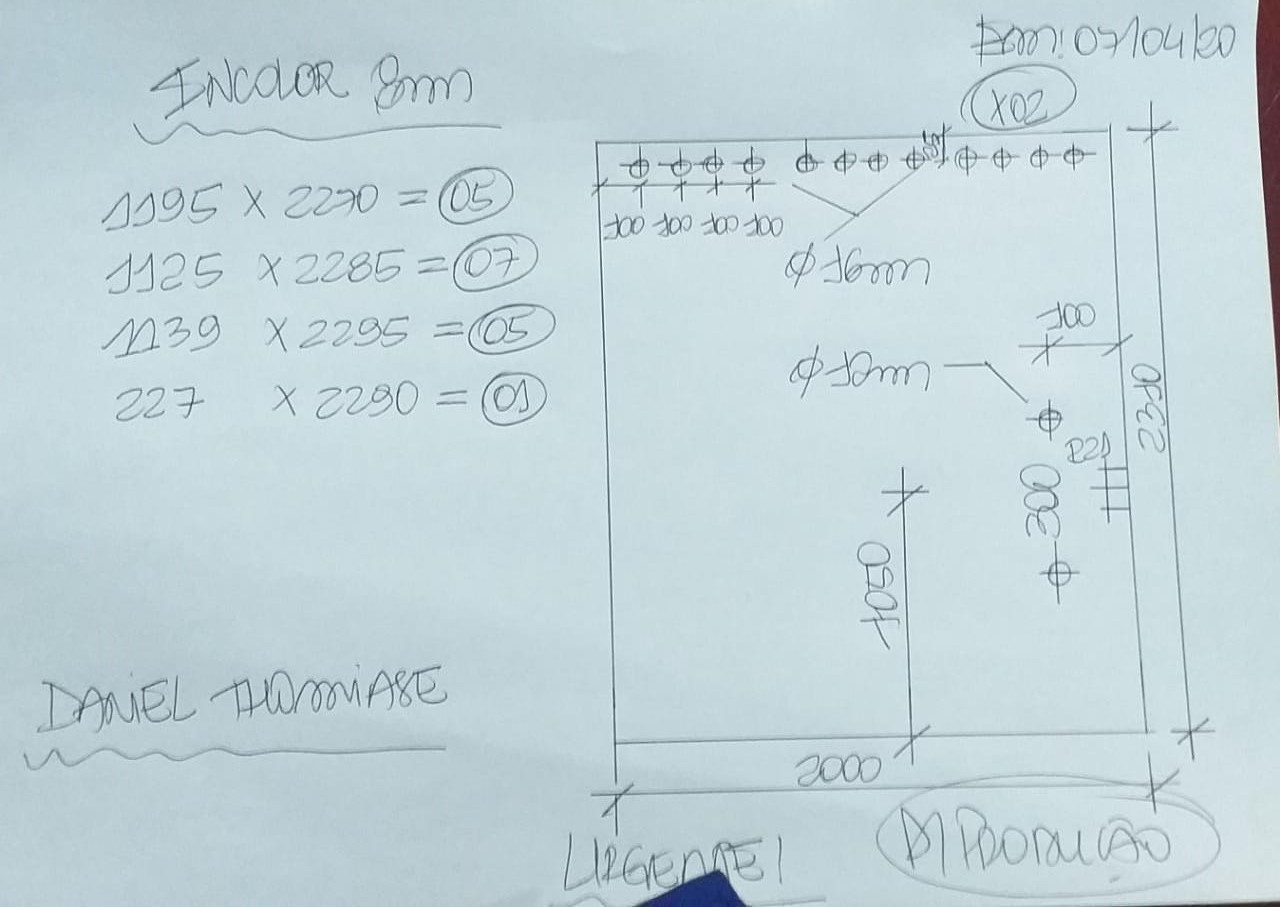 INCOLOR 8mm
1195 X 2270 = 05
1125 X 2285 = 07
1139 X 2295 = 05
227 X 2290 = 01
DANIEL THOMIASE
Em: 07/04/20
X02
100 100 100 100
Ø 16mm
100
Ø 12mm
2310
300
1050
2000
URGENTE!
P/ PRODUÇÃO